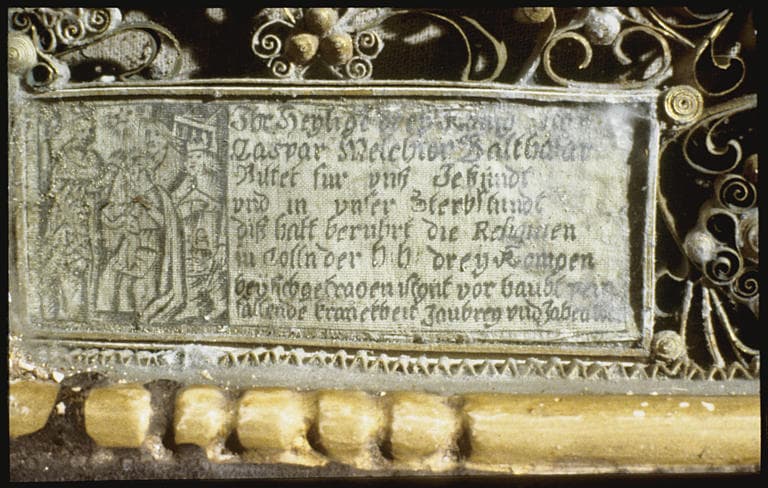 Ihr Heylige drey König
Caspar Melchior Balthasar
Bittet für vnß Jetzundt
vnd in vnser Sterbstundt
diß hatt berührt die Reliquien
in Cölln der H H drey Königen
bey sich getragen ist gut vor
fallende kranckheit Zaubrey vnd